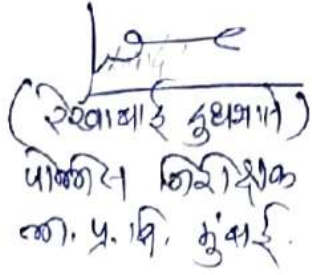 (रेखाबाई दुधभाते)
पोलीस निरीक्षक
ला. प्र. वि. मुंबई.